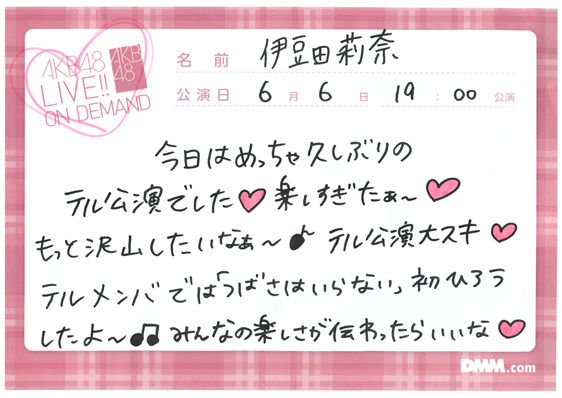 AKB48
LIVE!!
ON DEMAND
AKB
48
名前 伊豆田莉奈
公演日 6月6日 19:00公演
今日はめっちゃ久しぶりの
テル公演でした♥楽しすぎたぁ〜♥
もっと沢山したいなぁ〜♪テル公演大スキ♥
テルメンバでは「つばさはいらない」初ひろう
したよ〜♫みんなの楽しさが伝わったらいいな♥
DMM.com